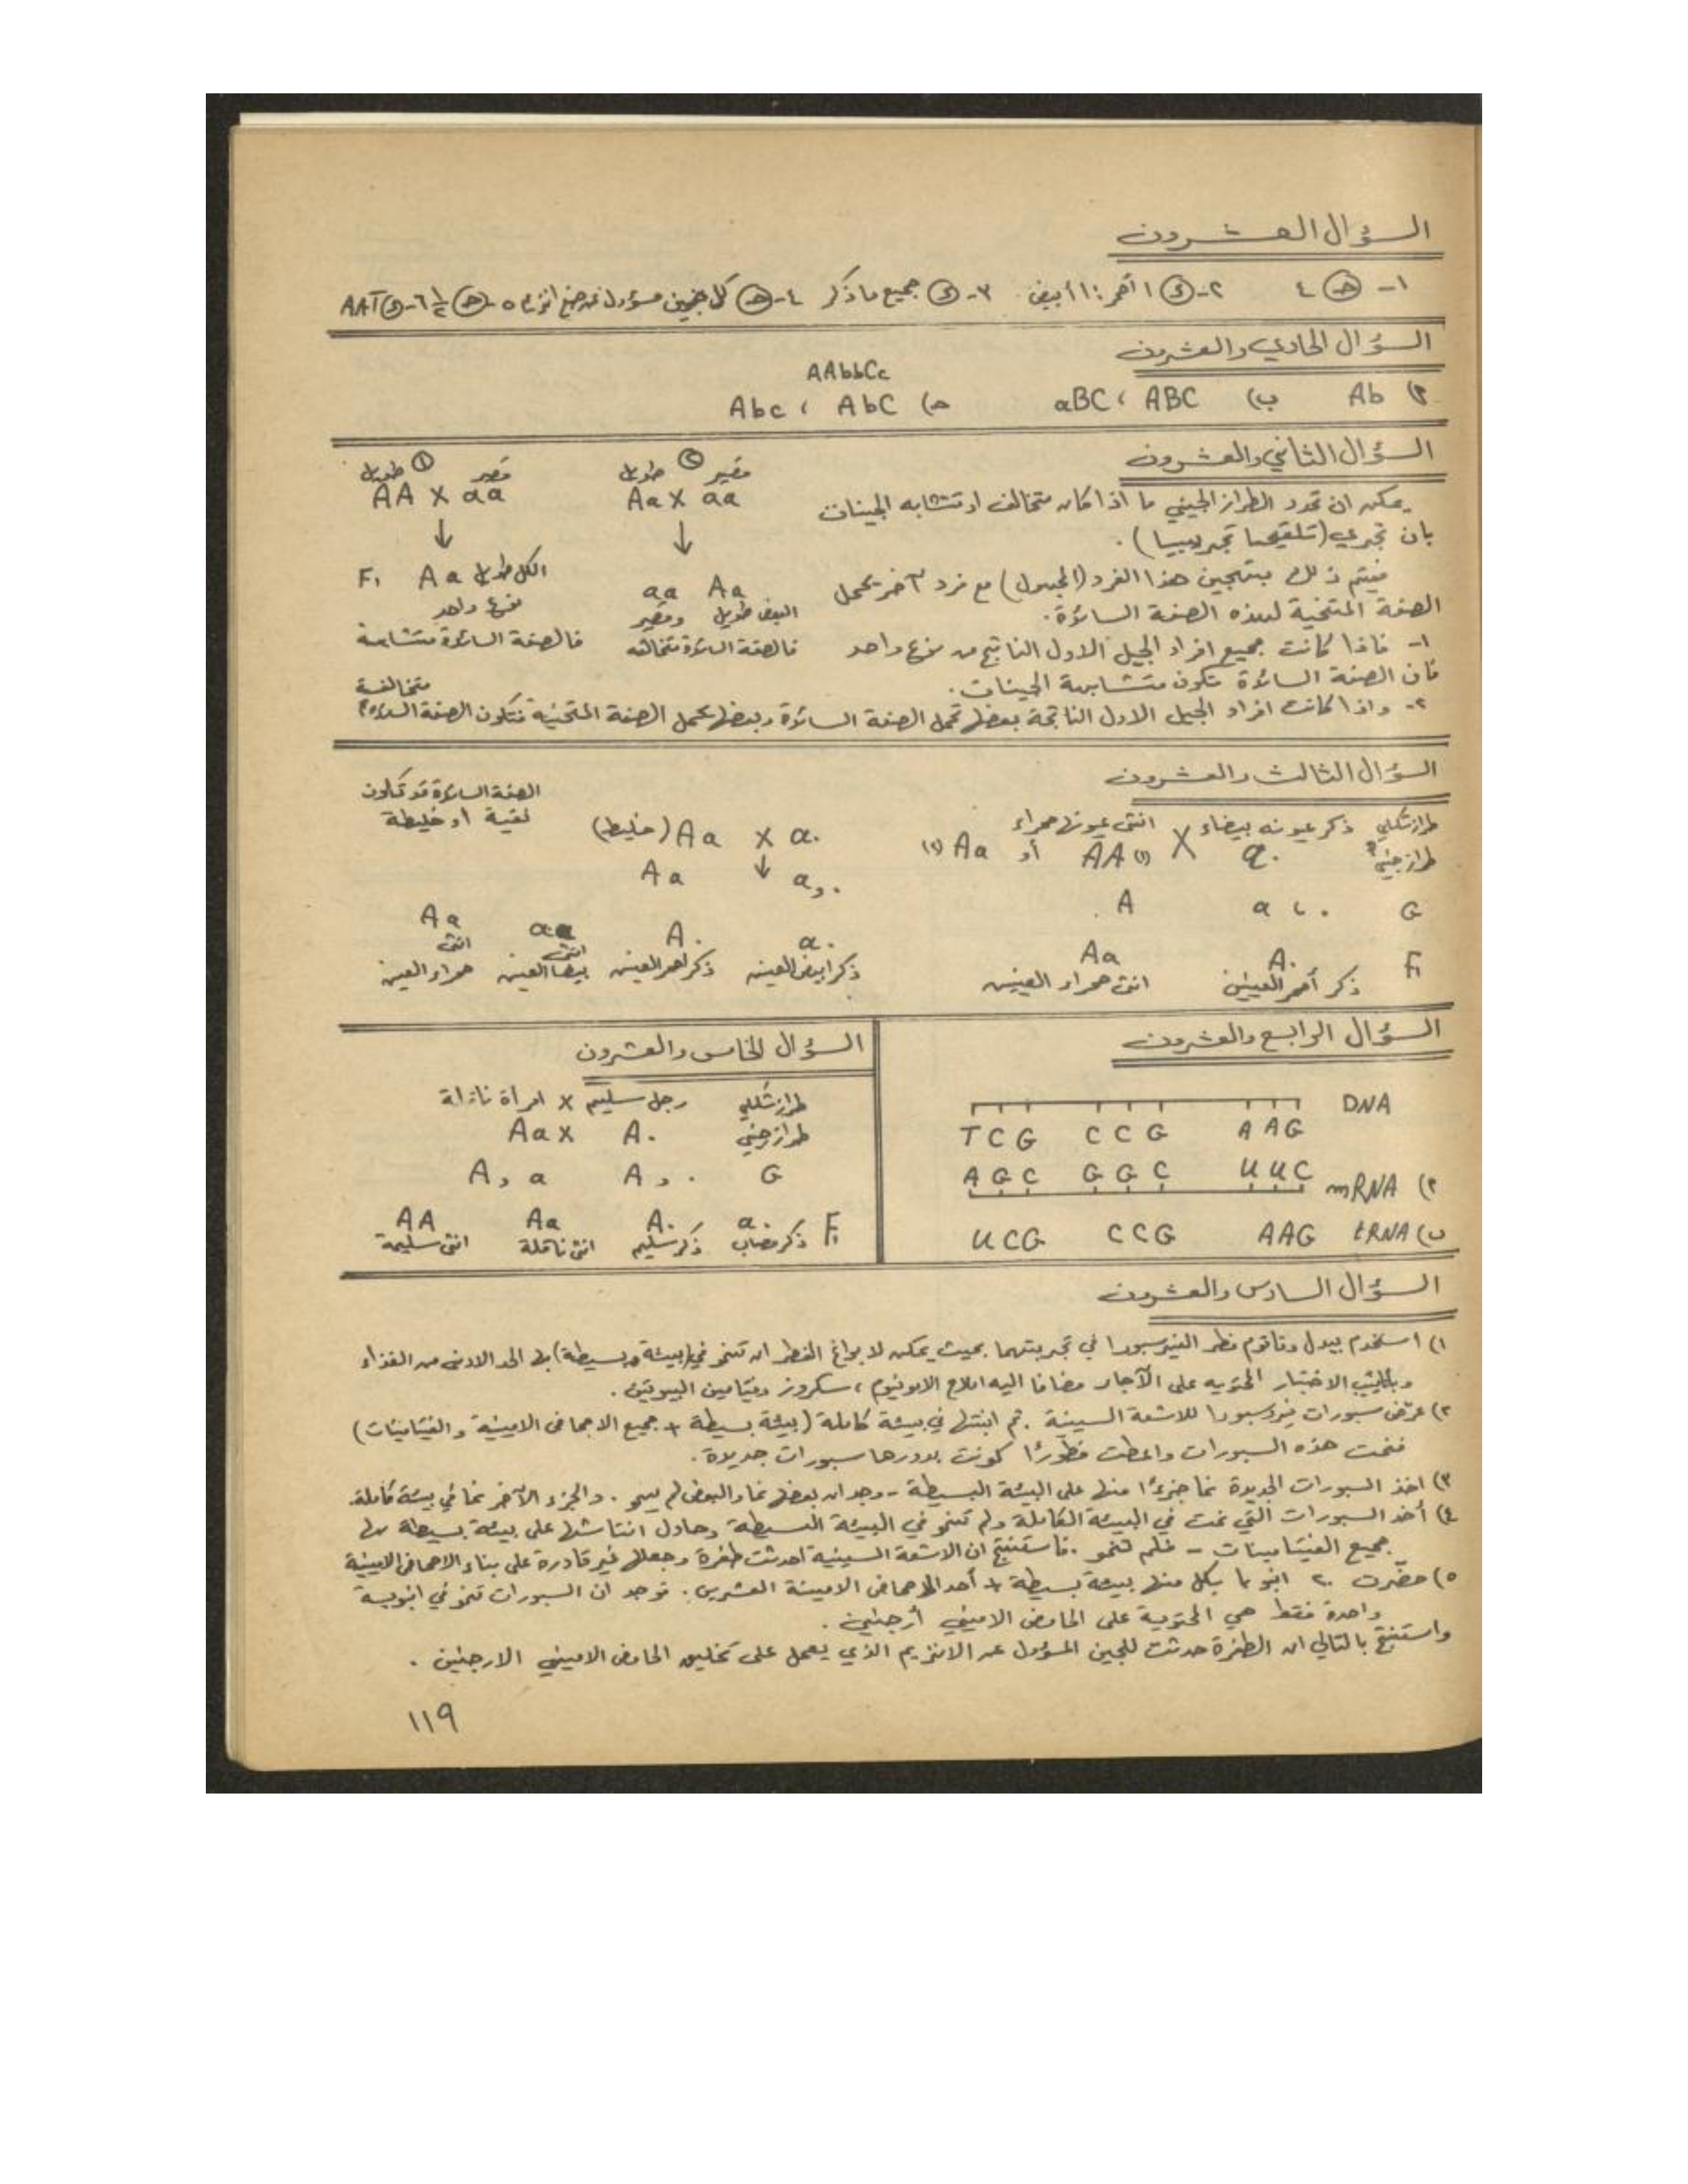 السؤال العشرون
١- (هـ) ٤ ٢- (د) ١ أحمر : ١ أبيض ٣- (د) جميع ما ذكر ٤- (هـ) كل جين مسؤول عن صنع انزيم ٥- (هـ) ½ ٦- (د) AAT
السؤال الحادي والعشرون
أ) Ab ب) ABC ، aBC ج) AbC ، Abc
AAbbCc
السؤال الثاني والعشرون
يمكن ان تحدد الطراز الجيني ما اذا كان متخالف او متشابه الجينات
بان تجري (تلقيحا تجريبيا) .
فيتم ذلك بتهجين هذا الفرد (المجهول) مع فرد آخر يحمل
الصفة المتنحية لهذه الصفة السائدة .
١- فاذا كانت جميع افراد الجيل الاول الناتج من نوع واحد
فان الصفة السائدة تكون متشابهة الجينات .
٢- واذا كانت افراد الجيل الاول الناتجة بعضها تحمل الصفة السائدة وبعضها يحمل الصفة المتنحية فتكون الصفة السائدة متخالفة
قصير ② طويل
Aa X aa
↓
aa Aa
البعض طويل وقصير
فالصفة السائدة متخالفة
قصير ① طويل
AA X aa
↓
F₁ Aa الكل طويل
نوع واحد
فالصفة السائدة متشابهة
السؤال الثالث والعشرون
طراز شكلي ذكر عيونه بيضاء X انثى عيونها حمراء
طراز جيني a. X AA (١) أو Aa (٢)
G a ، . A
F₁ A. Aa
ذكر أحمر العينين انثى حمراء العينين
الصفة السائدة قد تكون
نقية او خليطة
(خليط) Aa X a.
Aa ↓ a , .
a. A. aa Aa
ذكر ابيض العينين ذكر احمر العينين انثى بيضاء العينين انثى حمراء العينين
السؤال الرابع والعشرون
DNA
T C G C C G A A G
أ) mRNA A G C G G C U U C
ب) tRNA UCG CCG AAG
السؤال الخامس والعشرون
طراز شكلي رجل سليم X امرأة ناقلة
طراز جيني Aa X A.
G A , a A , .
F₁ a. A. Aa AA
ذكر مصاب ذكر سليم انثى ناقلة انثى سليمة
السؤال السادس والعشرون
١) استخدم بيدل وتاتوم فطر النيوروسبورا في تجربتهما بحيث يمكن لابواغ الفطر ان تنمو في (بيئة بسيطة) بها الحد الادنى من الغذاء
وبانابيب الاختبار المحتويه على الآجار مضافا اليه املاح الامونيوم ، سكروز وفيتامين البيوتين .
٢) عرّض سبورات نيوروسبورا للاشعة السينية . ثم ابنتها في بيئة كاملة (بيئة بسيطة + جميع الاحماض الامينية والفيتامينات)
فنمت هذه السبورات واعطت فطورًا كونت بدورها سبورات جديدة .
٣) اخذ السبورات الجديدة نما جزءًا منها على البيئة البسيطة - وجد ان بعضها نما والبعض لم ينمو . والجزء الآخر نما في بيئة كاملة .
٤) أخذ السبورات التي نمت في البيئة الكاملة ولم تنمو في البيئة البسيطة وحاول انتاشها على بيئة بسيطة بها
جميع الفيتامينات - فلم تنمو . فاستنتج ان الاشعة السينية احدثت طفرة وجعلها غير قادرة على بناء الاحماض الامينية
٥) حضّرت ٢٠ انبوبا بكل منها بيئة بسيطة + أحد الاحماض الامينة العشرين . فوجد ان السبورات تنمو في انبوبة
واحدة فقط هي المحتوية على الحامض الاميني أرجنين .
واستنتج بالتالي ان الطفرة حدثت للجين المسؤول عن الانزيم الذي يعمل على تخليق الحامض الاميني الارجنين .
١١٩